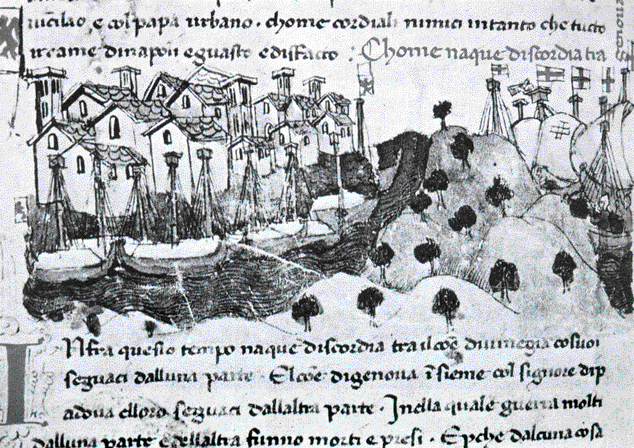 uicilao e col papa urbano · chome cordiali nimici intanto che tucto
ireame dinapoli e guasto e disfacto : Chome naque discordia tra
Infra questo tempo naque discordia tra il coē diuinegia cosuoi
seguaci dalluna parte · El coē digenoua īsieme col signore dip
adoua elloro seguaci dallaltra parte · Inella quale guerra molti
dalluna parte e dellaltra funno morti e presi · Epche dalcuna cosa